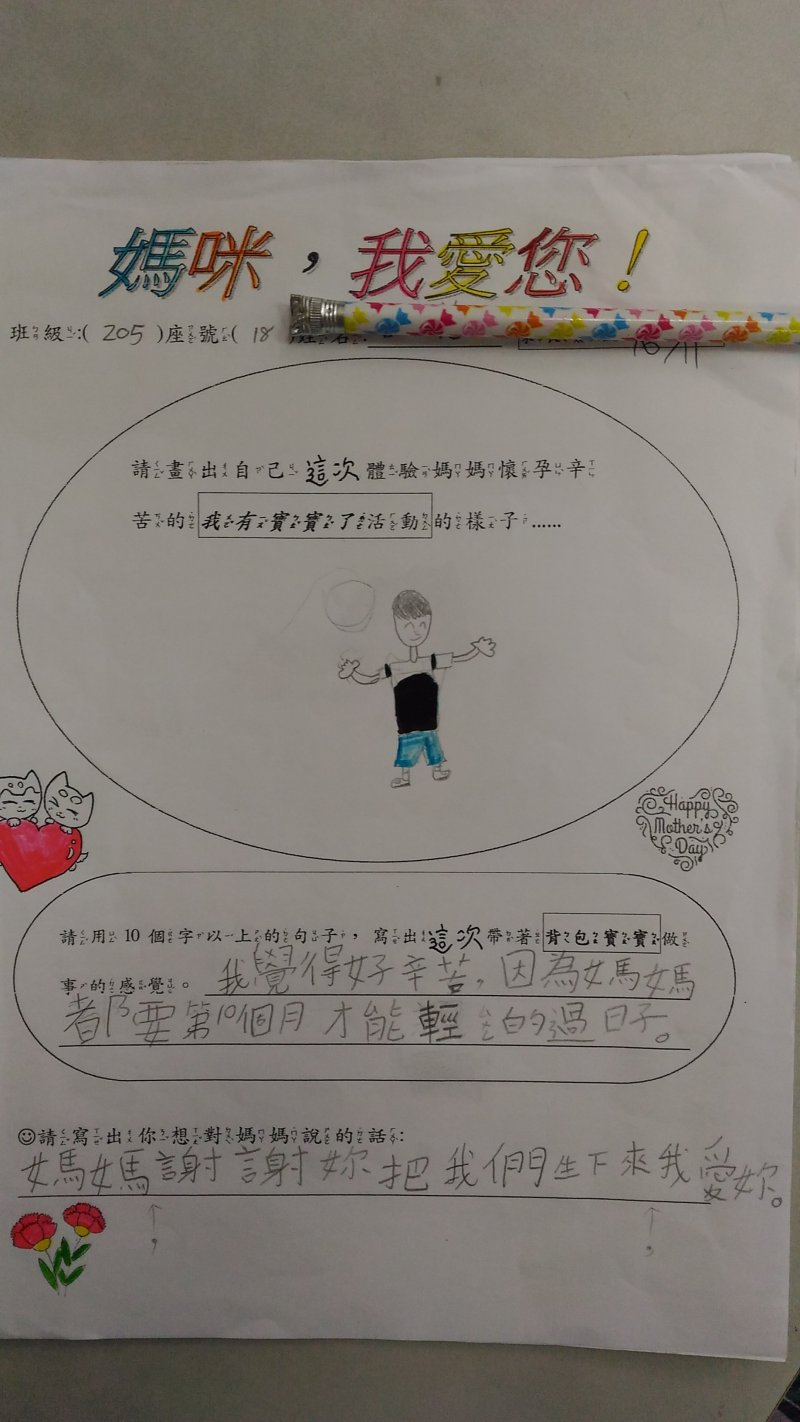 媽咪，我愛您！
班級:( 205 )座號( 18
16/11
請畫出自己這次體驗媽媽懷孕辛
苦的我有寶寶了活動的樣子……
Happy
Mother's
Day
請用 10 個字以上的句子，寫出這次帶著背包寶寶做
事的感覺。我覺得好辛苦，因為媽媽
都要第10個月才能輕ㄙㄨㄥ的過日子。
☺請寫出你想對媽媽說的話:
媽媽謝謝妳把我們生下來我愛妳。
， ，